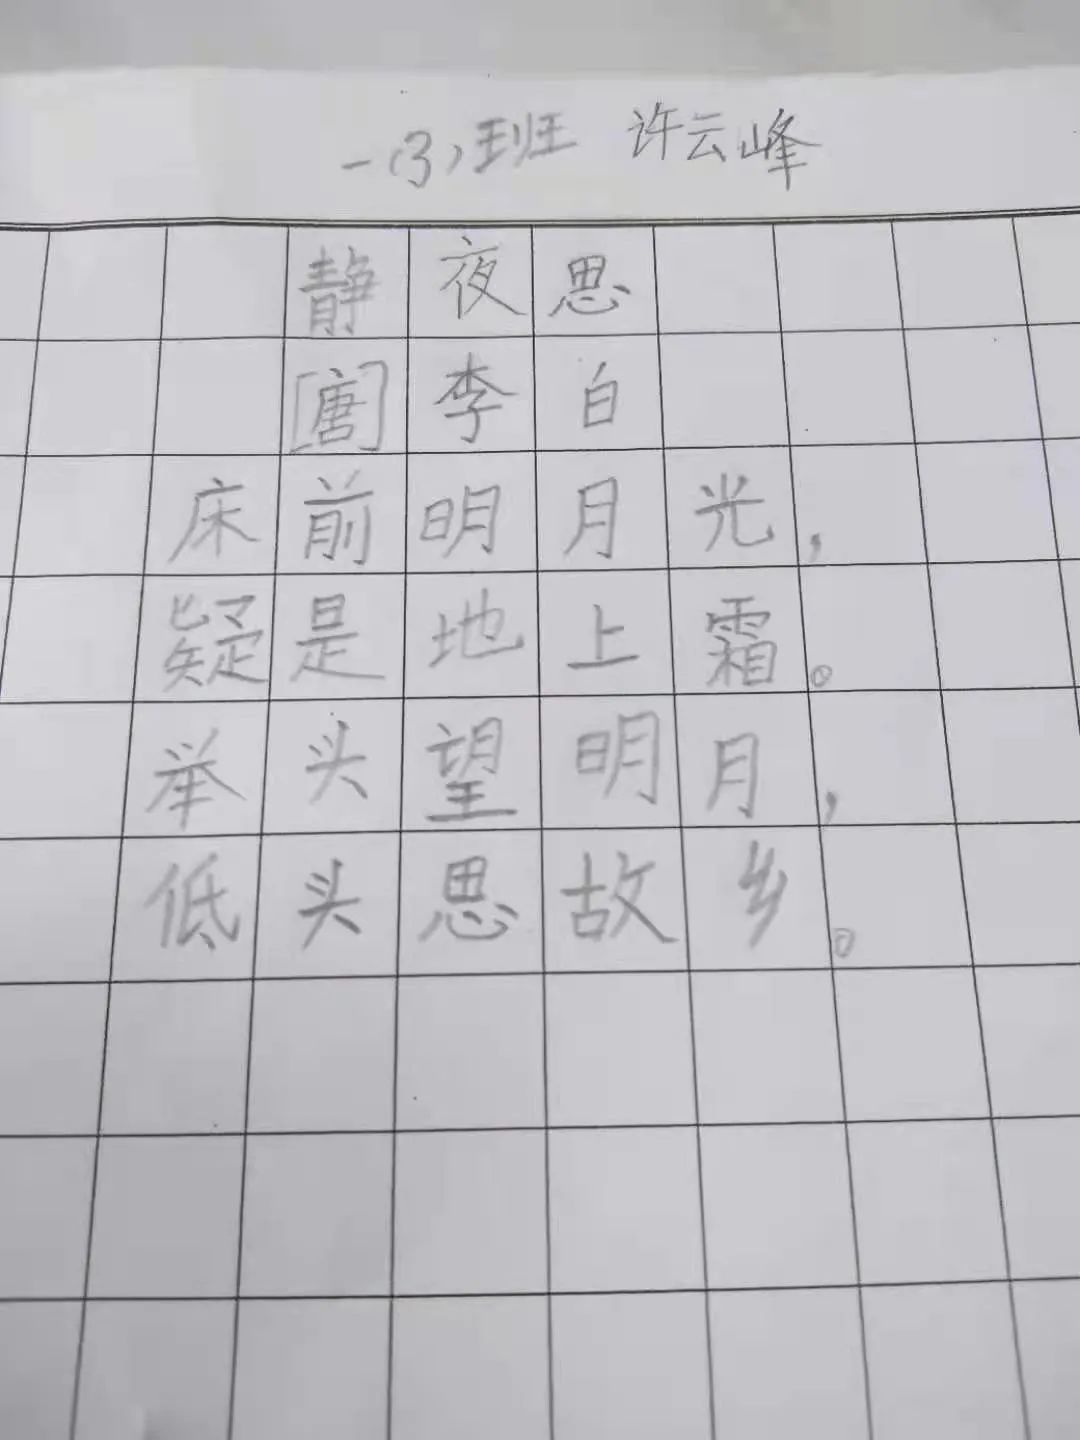 一(3)班 许云峰
静夜思
[唐]李白
床前明月光,
疑是地上霜。
举头望明月,
低头思故乡。